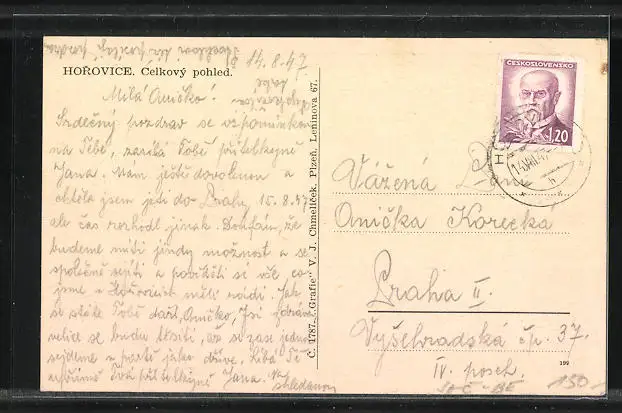 14.8.47
HOŘOVICE. Celkový pohled.
Milá Aničko!
Srdečný pozdrav se vzpomínkou
na Tebe, zasílá Tobě přítelkyně
Jana. Mám ještě dovolenou a
chtěla jsem jeti do Prahy, 15.8.47
ale čas rozhodl jinak. Doufám, že
budeme míti jindy možnost a se
společně sejíti a pověděti si vše co
jsme v Hořovicích měli rádi. Jak
se stále Tobě daří, Aničko, Jsi zdráva
velice se budu těšiti, až se zase jednou
sejdeme v partii jako dříve. Líbá Tě
upřímně Tvá přítelkyně Jana. Na shledanou
Č. 1787- „Grafie" V. J. Chmelíček, Plzeň, Leninova 67.
ČESKOSLOVENSKO
1.20
14.VIII.47
Vážená
Anička Korecká
Praha II.
Vyšehradská čp. 37.
IV. posch.
199
150-